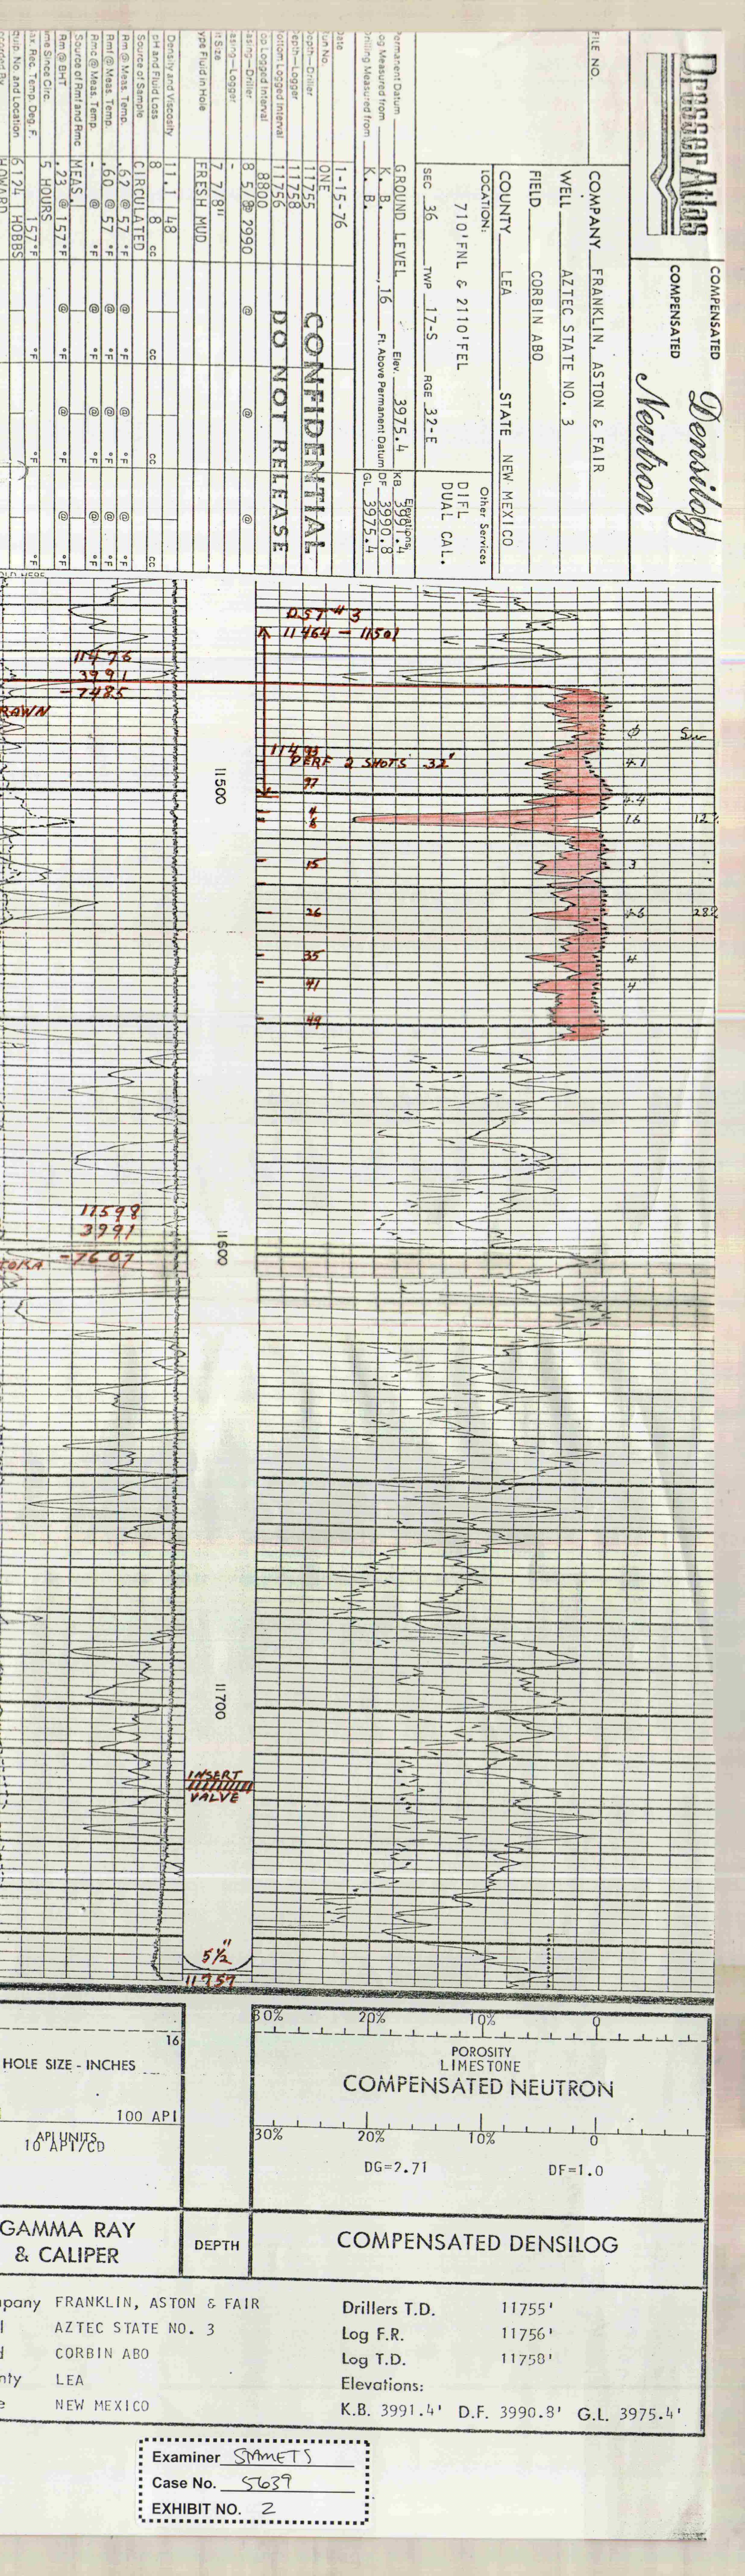 Dresser Atlas
COMPENSATED
Densilog
COMPENSATED
Neutron
FILE NO.
COMPANY FRANKLIN, ASTON & FAIR
WELL AZTEC STATE NO. 3
FIELD CORBIN ABO
COUNTY LEA STATE NEW MEXICO
LOCATION:
710'FNL & 2110'FEL
SEC 36 TWP 17-S RGE 32-E
Other Services
DIFL
DUAL CAL.
Permanent Datum GROUND LEVEL Elev. 3975.4
Log Measured from K. B. 16 Ft. Above Permanent Datum
Drilling Measured from K. B.
Elevations:
KB 3991.4
DF 3990.8
GL 3975.4
Date 1-15-76
Run No. ONE
Depth—Driller 11755
Depth—Logger 11758
Bottom Logged Interval 11756
Top Logged Interval 8800
Casing—Driller 8 5/8 @ 2990 @ @ @
Casing—Logger -
Bit Size 7 7/8"
Type Fluid in Hole FRESH MUD
CONFIDENTIAL
DO NOT RELEASE
Density and Viscosity 11.1 48
pH and Fluid Loss 8 8 cc cc cc cc
Source of Sample CIRCULATED
Rm @ Meas. Temp. .62 @ 57 °F @ °F @ °F @ °F
Rmf @ Meas. Temp. .60 @ 57 °F @ °F @ °F @ °F
Rmc @ Meas. Temp. - @ °F @ °F @ °F @ °F
Source of Rmf and Rmc MEAS.
Rm @ BHT .23 @ 157°F @ °F @ °F @ °F
Time Since Circ. 5 HOURS
Max. Rec. Temp. Deg. F. 157°F °F °F °F
Equip. No. and Location 6124 HOBBS
HOWARD
DST #3
11464 - 11501
11476
3991
-7485
RAWN
φ Sw
11493
PERF 2 SHOTS .32"
4.1
97
11500
4.4
4
6
16 12%
15
3
26
28%
35
4
41
4
49
11598
3991
-7607
TOKA
11600
11700
INSERT
VALVE
5½"
11757
30% 20% 10% 0
16
HOLE SIZE - INCHES
POROSITY
LIMESTONE
COMPENSATED NEUTRON
100 API
API UNITS
10 API/CD
30% 20% 10% 0
DG=2.71 DF=1.0
GAMMA RAY
& CALIPER
DEPTH
COMPENSATED DENSILOG
pany FRANKLIN, ASTON & FAIR
AZTEC STATE NO. 3
CORBIN ABO
nty LEA
NEW MEXICO
Drillers T.D. 11755'
Log F.R. 11756'
Log T.D. 11758'
Elevations:
K.B. 3991.4' D.F. 3990.8' G.L. 3975.4'
Examiner STAMETS
Case No. 5639
EXHIBIT NO. 2